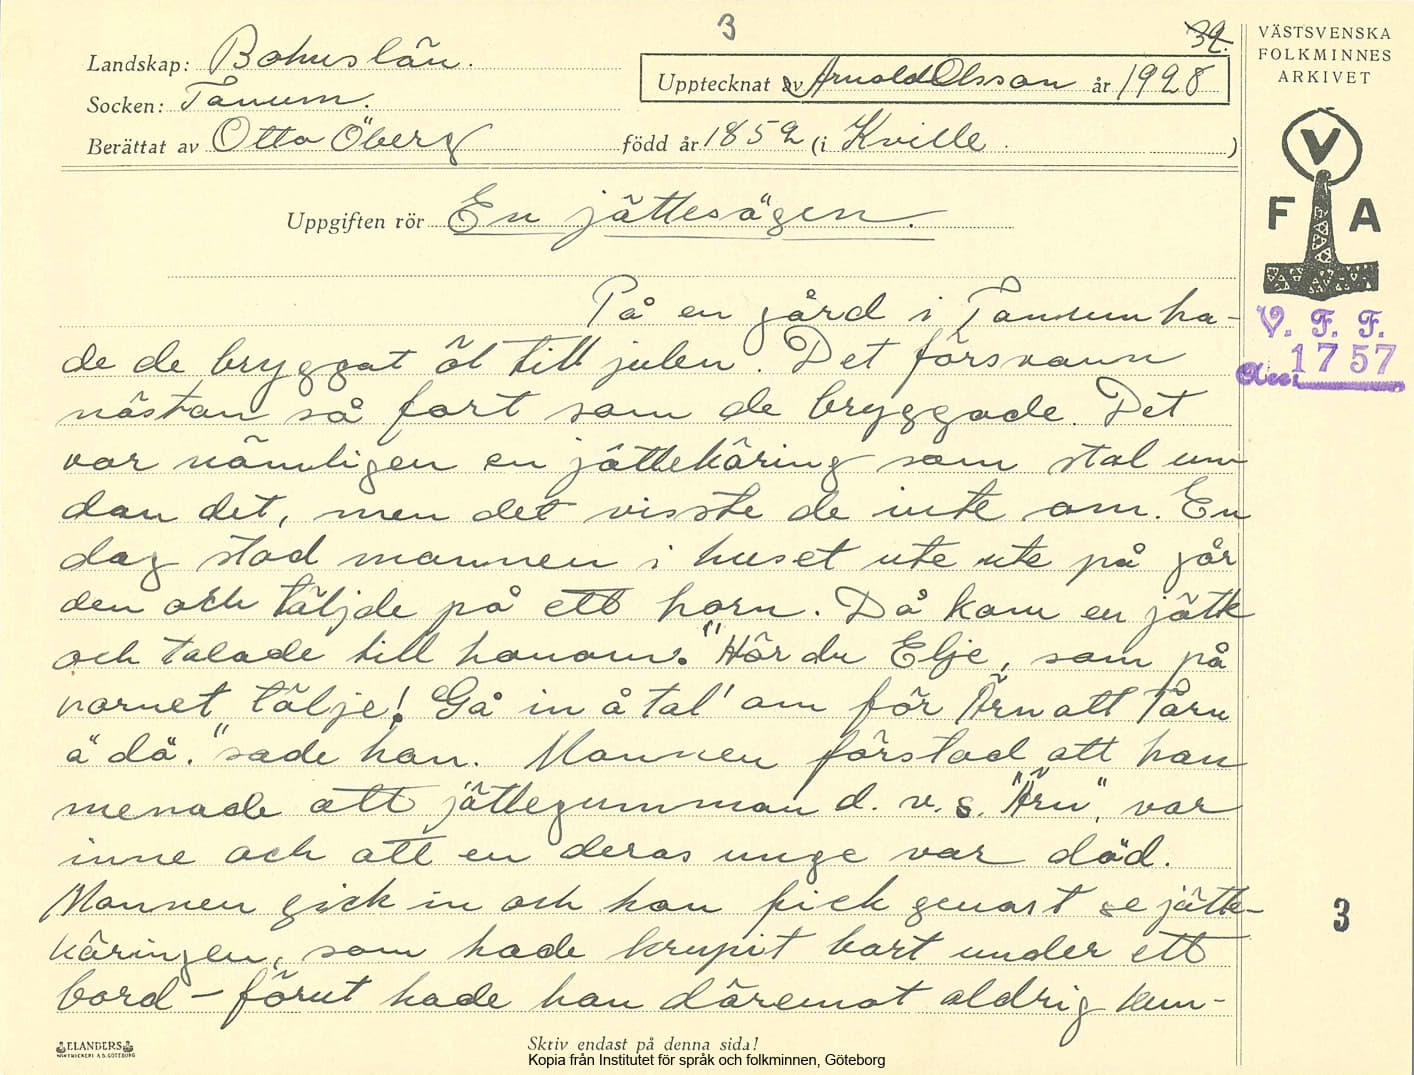 3
32.
Landskap: Bohuslän.
Upptecknat av Arnold Olsson år 1928
Socken: Tanum.
Berättat av Otto Öberg född år 1852 (i Kville )
Uppgiften rör En jättesägen.
VÄSTSVENSKA
FOLKMINNES
ARKIVET
V
F A
V. F. F.
Acc. 1757
På en gård i Tanum ha-
de de bryggat öl till julen. Det försvann
nästan så fort som de bryggade. Det
var nämligen en jättekäring som stal un
dan det, men det visste de inte om. En
dag stod mannen i huset ute ute på går
den och täljde på ett horn. Då kom en jätte
och talade till honom. "Hör du Elje, som på
hornet tälje! Gå in å tal' om för Ärn att Tårn
ä dö." sade han. Mannen förstod att han
menade att jättegumman d. v. s. "Ärn", var
inne och att en deras unge var död.
Mannen gick in och han fick genast se jätte-
käringen, som hade krupit bort under ett
bord – förut hade han däremot aldrig kun-
3
ELANDERS
BOKTRYCKERI A.B. GÖTEBORG
Skriv endast på denna sida!
Kopia från Institutet för språk och folkminnen, Göteborg